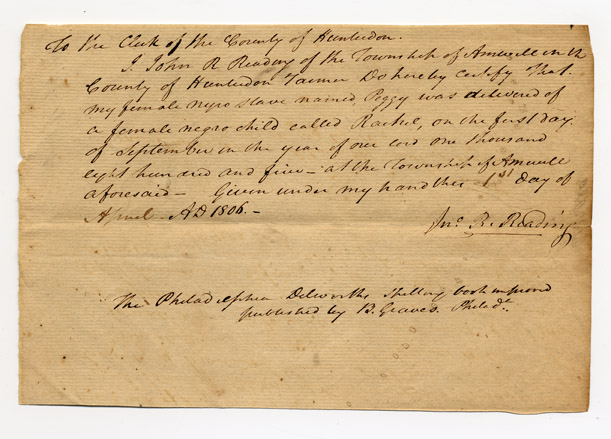 To the Clerk of the County of Hunterdon.
I. John R Reading of the Township of Amwell in the
County of Hunterdon Farmer Do hereby certify That.
my female negro slave named Peggy was delivered of
a female negro child called Rachel, on the first day
of September in the year of our lord one thousand
eight hundred and five – at the Township of Amwell
aforesaid – Given under my hand this 1st Day of
April AD 1806. –
Jno. R. Reading
The Philadelphia Dilworths Spelling book improved
published by B. Graves. Philada.